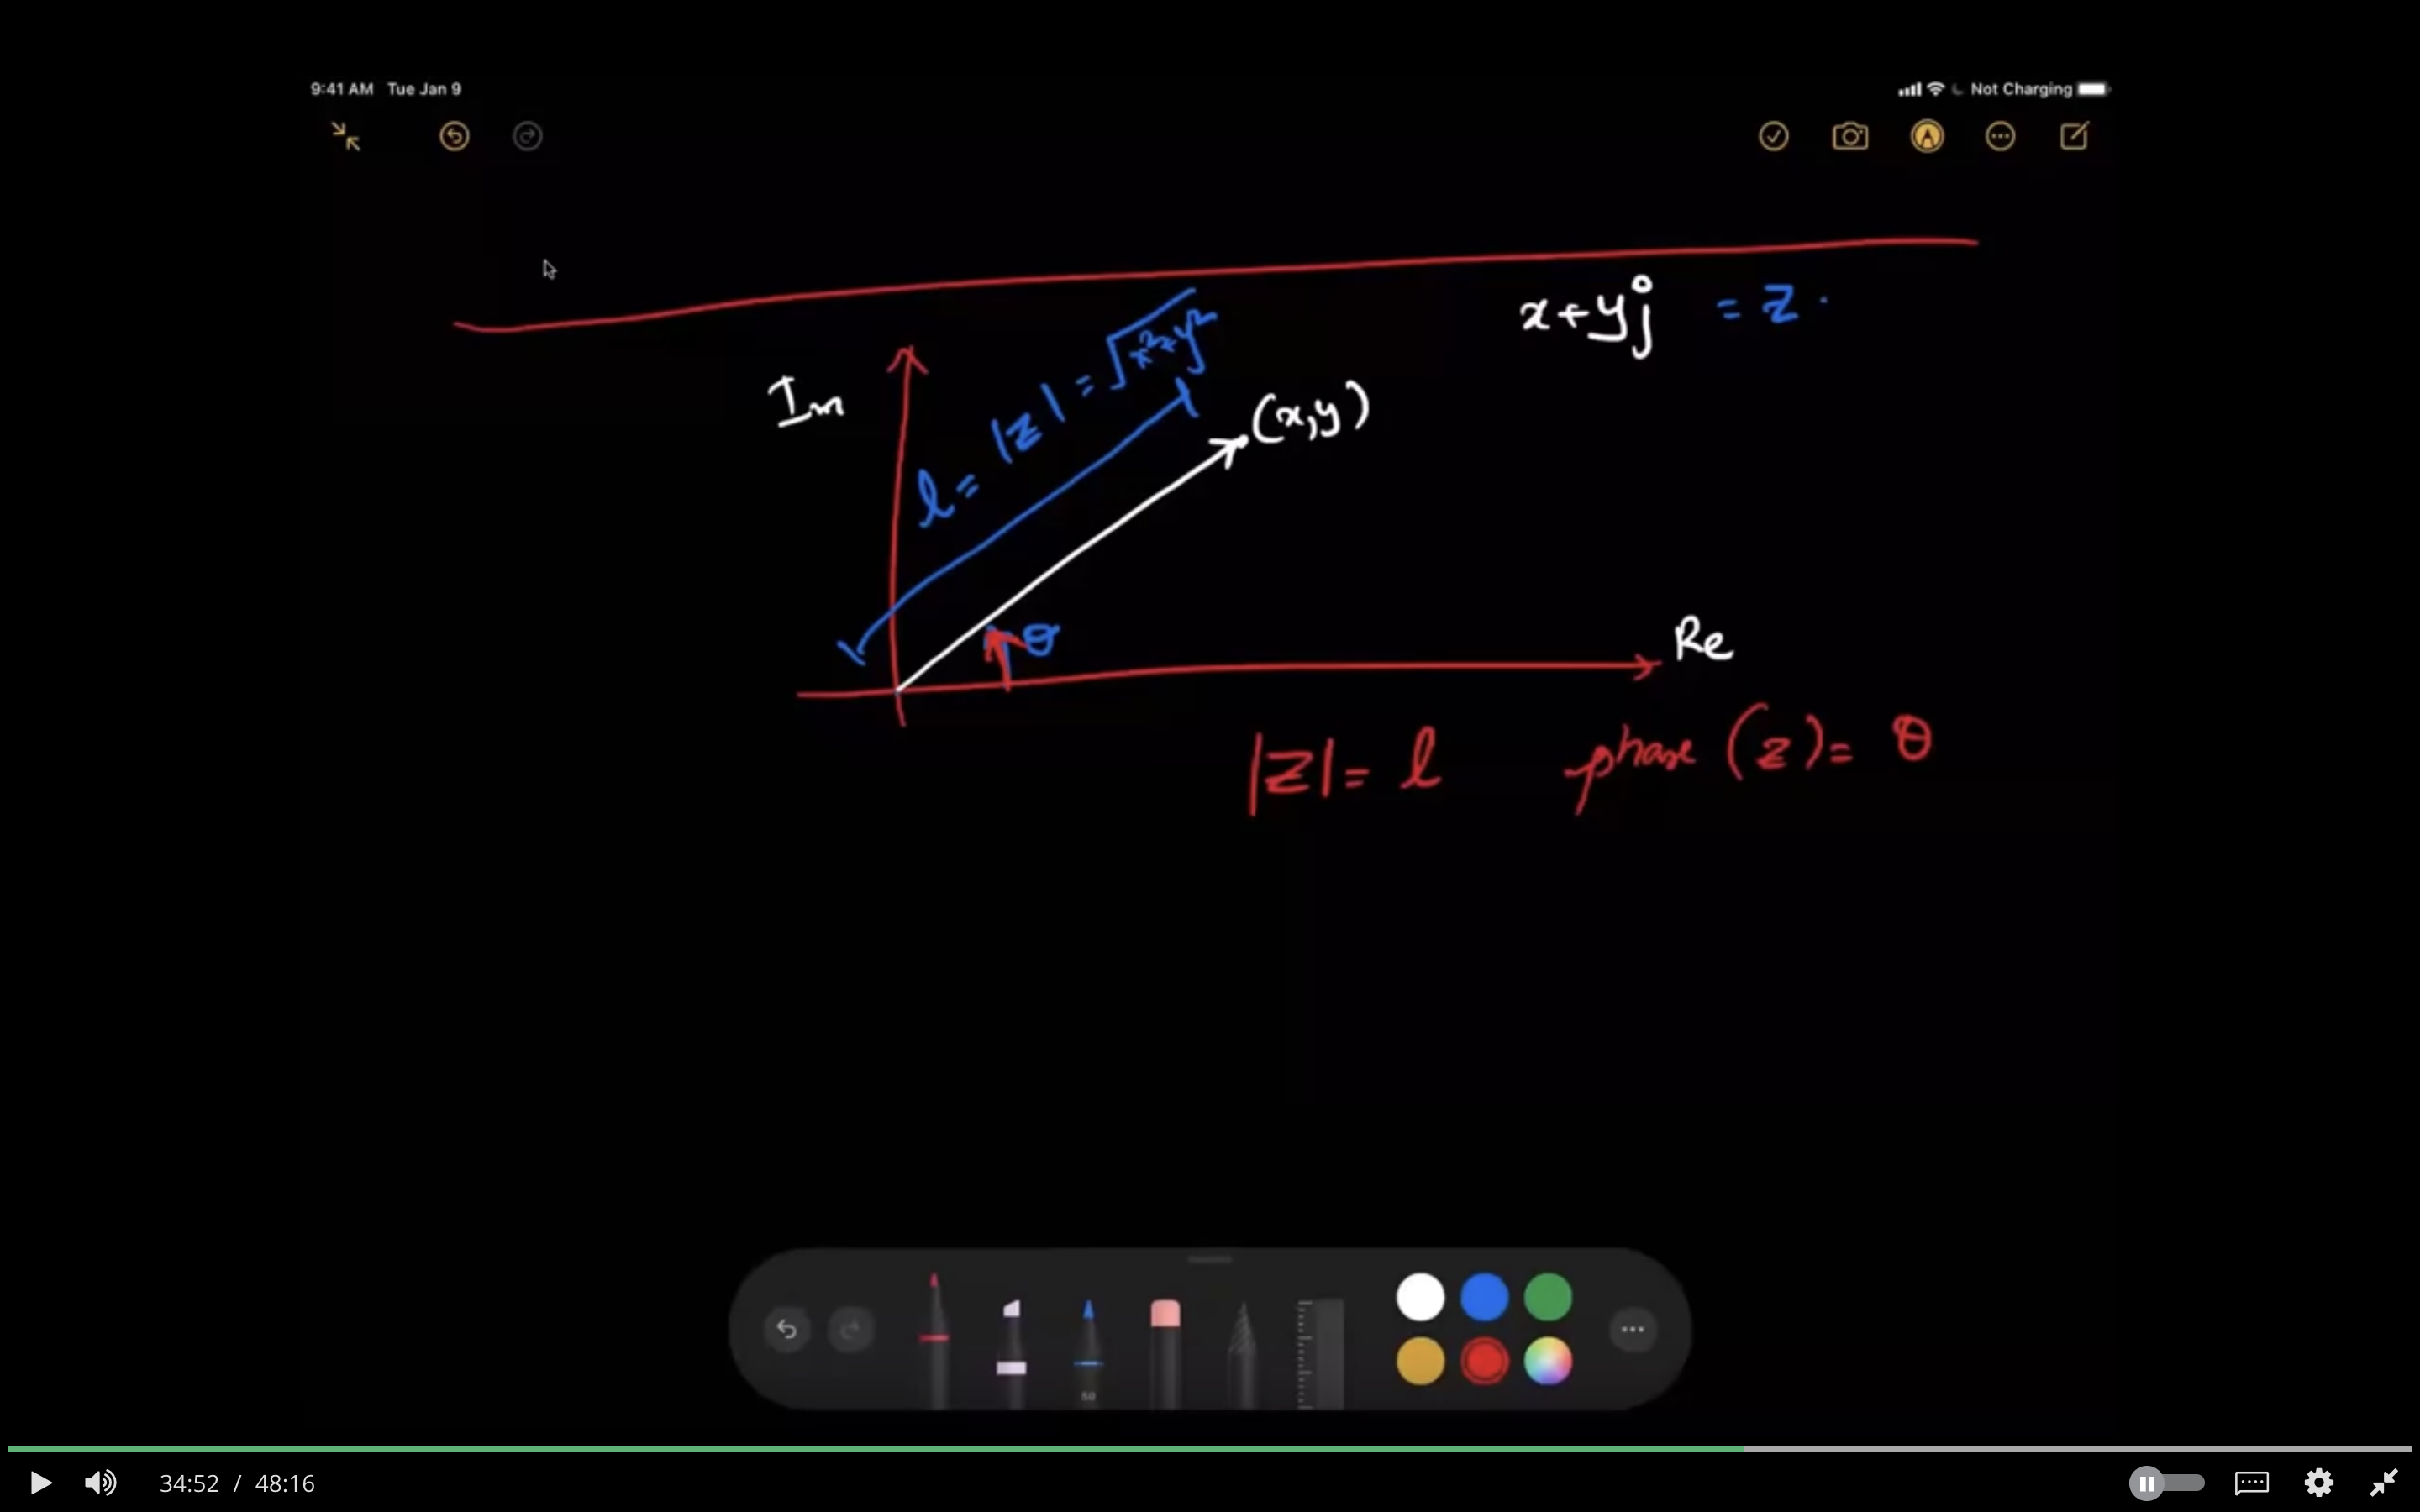 9:41 AM Tue Jan 9
Not Charging
x+yj = z.
l = |z| = √x²+y²
Im
(x,y)
θ
Re
|z| = l phase (z) = θ
50
34:52 / 48:16